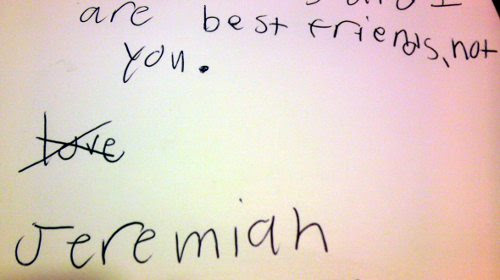 are best friends, not
you.
love
Jeremiah